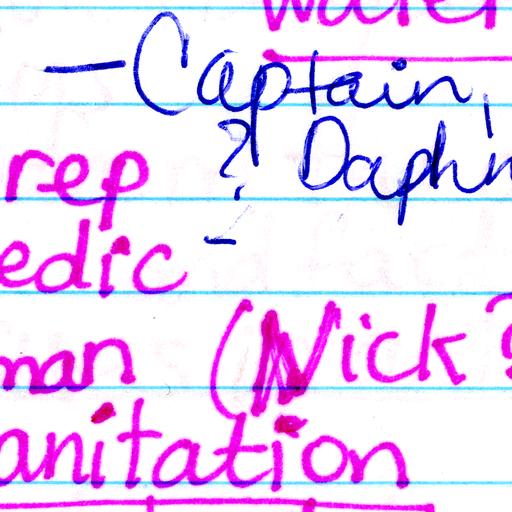 water
— Captain,
rep ? Daphn
edic -
man (Nick?
anitation